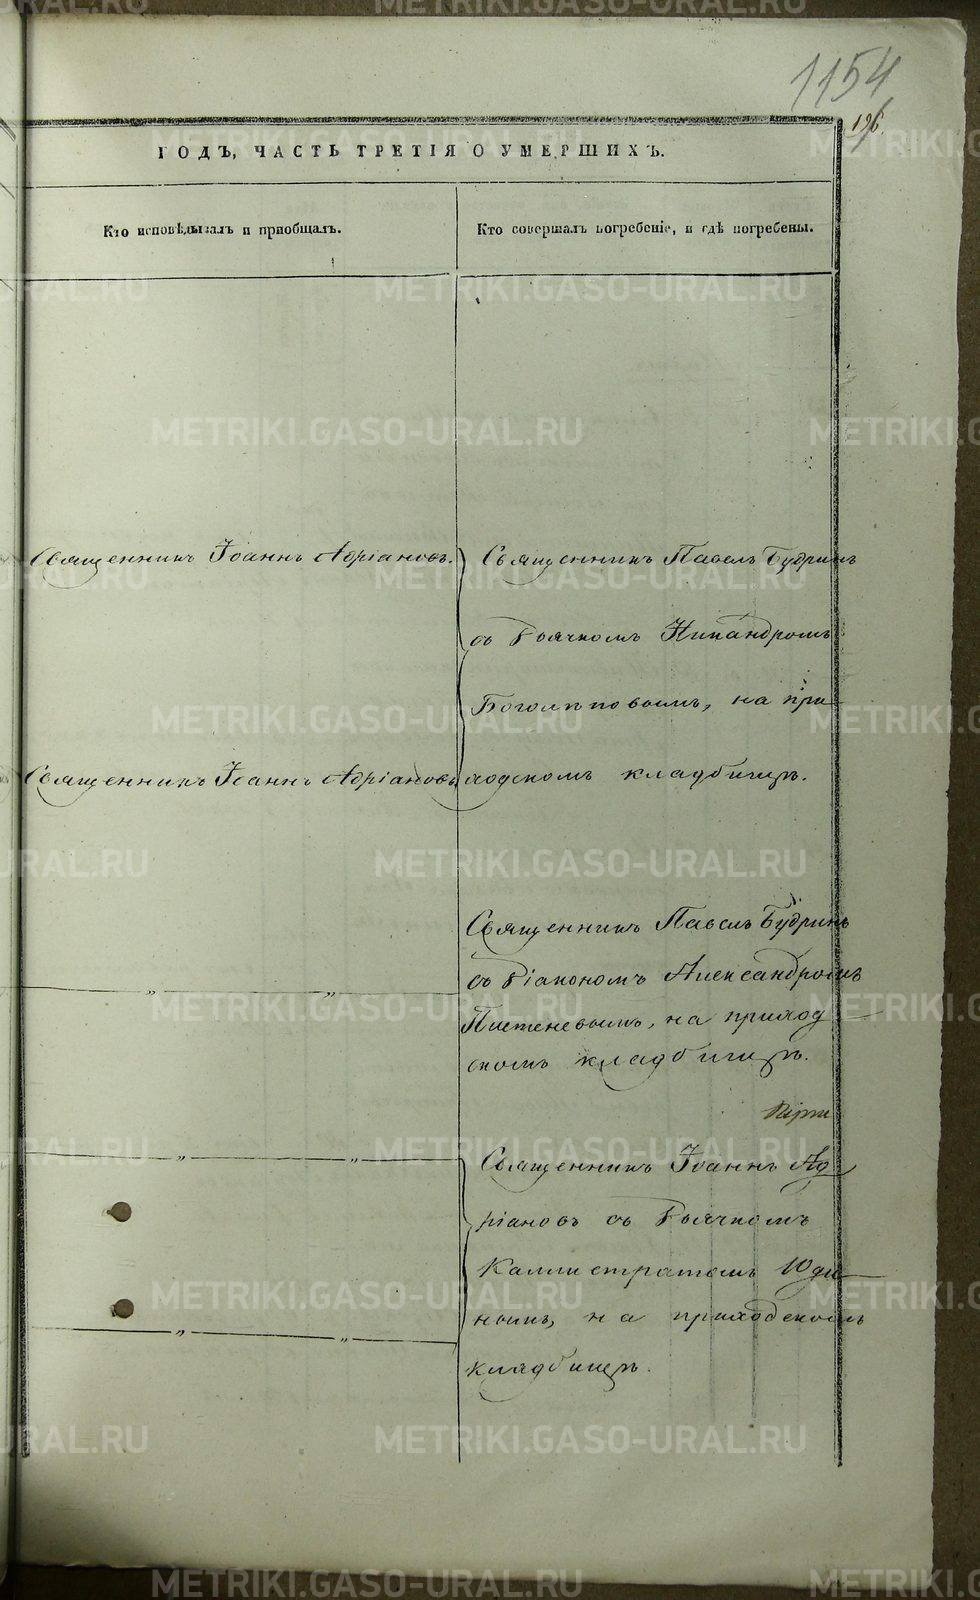 1154
196
ГОДЪ, ЧАСТЬ ТРЕТІЯ О УМЕРШИХЪ.
Кто исповѣдывалъ и пріобщалъ.
Кто совершалъ погребеніе, и гдѣ погребены.
Священникъ Іоаннъ Адріановъ.
Священникъ Павелъ Будринъ
съ Дьячкомъ Никандромъ
Боголѣповымъ, на при
Священникъ Іоаннъ Адріановъ
ходскомъ кладбищѣ.
Священникъ Павелъ Будринъ
съ Діакономъ Александромъ
на приход
скомъ кладбищѣ.
„ „
„ „
Священникъ Іоаннъ Ад
ріановъ съ Дьячкомъ
Каллистратомъ Юди
нымъ, на приходскомъ
„ „
кладбищѣ.
METRIKI.GASO-URAL.RU